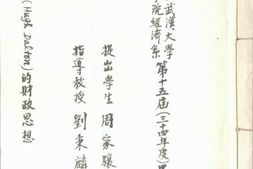 武漢大學
院經濟系
第十五屆(三十四年度)
提出學生 周家驤
指導教授 劉秉麟
(Hugh Dalton)的財政思想